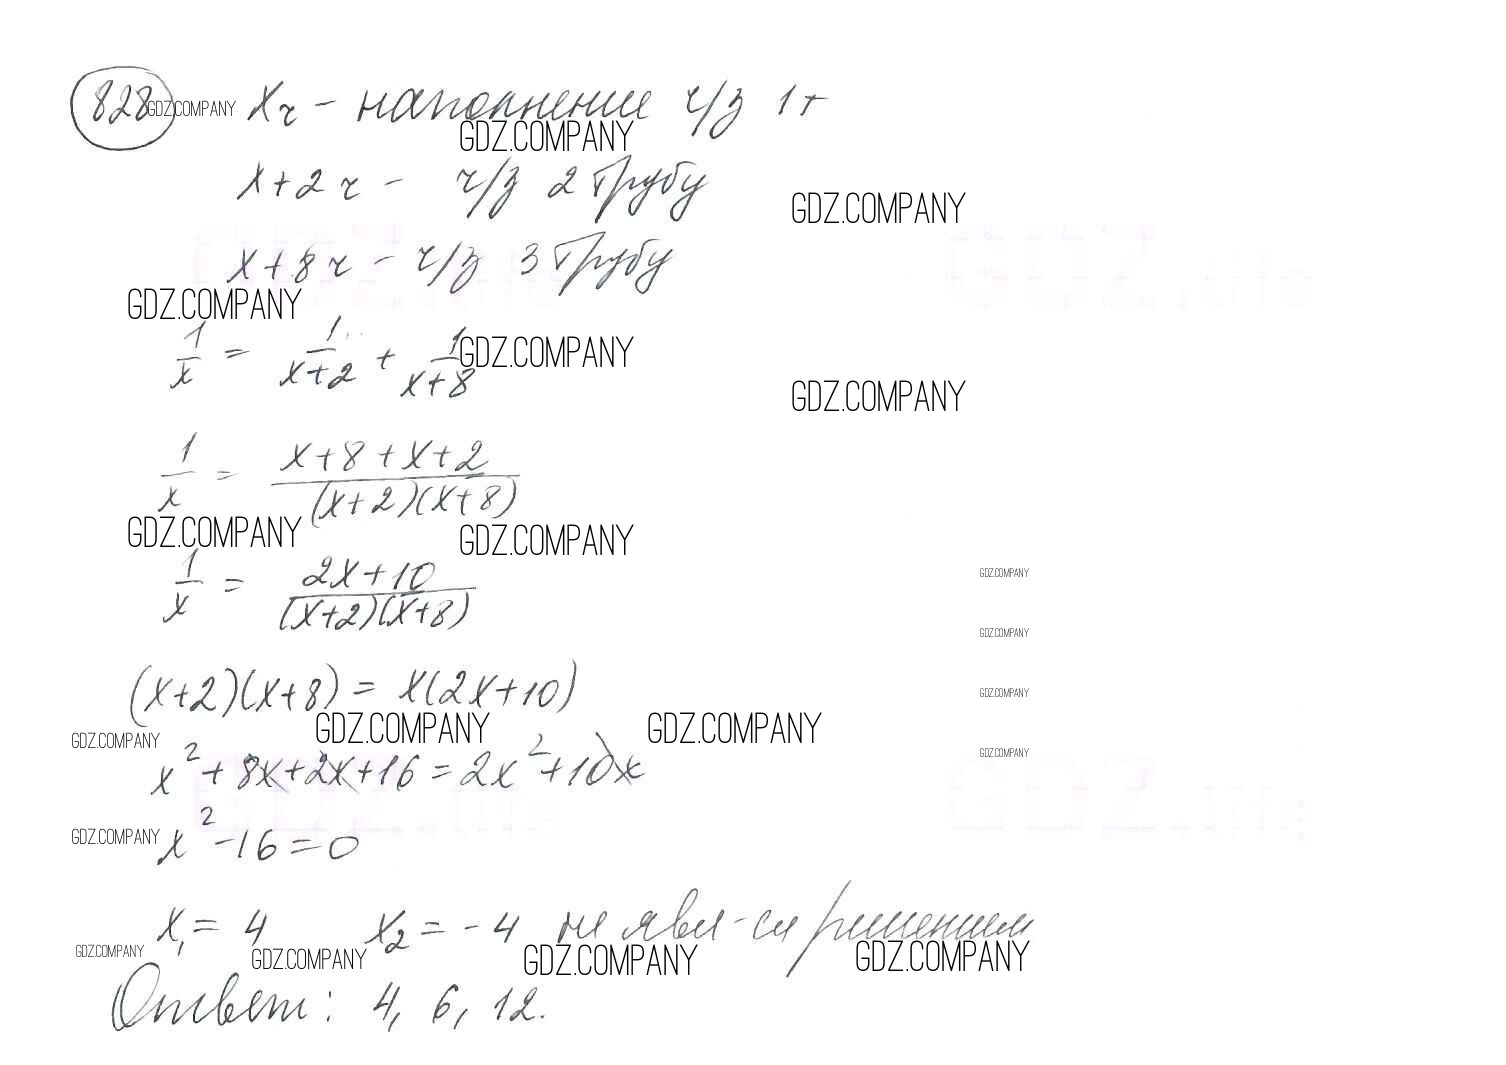 828 GDZ.COMPANY xч – наполнение ч/з 1т
GDZ.COMPANY
x+2 ч – ч/з 2 трубу
GDZ.COMPANY
x+8 ч – ч/з 3 трубу
GDZ.life GDZ.life
GDZ.COMPANY
1/x = 1/(x+2) + 1/(x+8)
GDZ.COMPANY
GDZ.COMPANY
1/x = (x+8+x+2)/((x+2)(x+8))
GDZ.COMPANY GDZ.COMPANY
1/x = (2x+10)/((x+2)(x+8))
GDZ.COMPANY
GDZ.COMPANY
(x+2)(x+8) = x(2x+10)
GDZ.COMPANY
GDZ.COMPANY GDZ.COMPANY
GDZ.COMPANY
GDZ.COMPANY
x²+8x+2x+16=2x²+10x
GDZ.life GDZ.life
GDZ.COMPANY x²-16=0
x₁=4 x₂=-4 не явл-ся решением
GDZ.COMPANY GDZ.COMPANY GDZ.COMPANY GDZ.COMPANY
Ответ: 4, 6, 12.